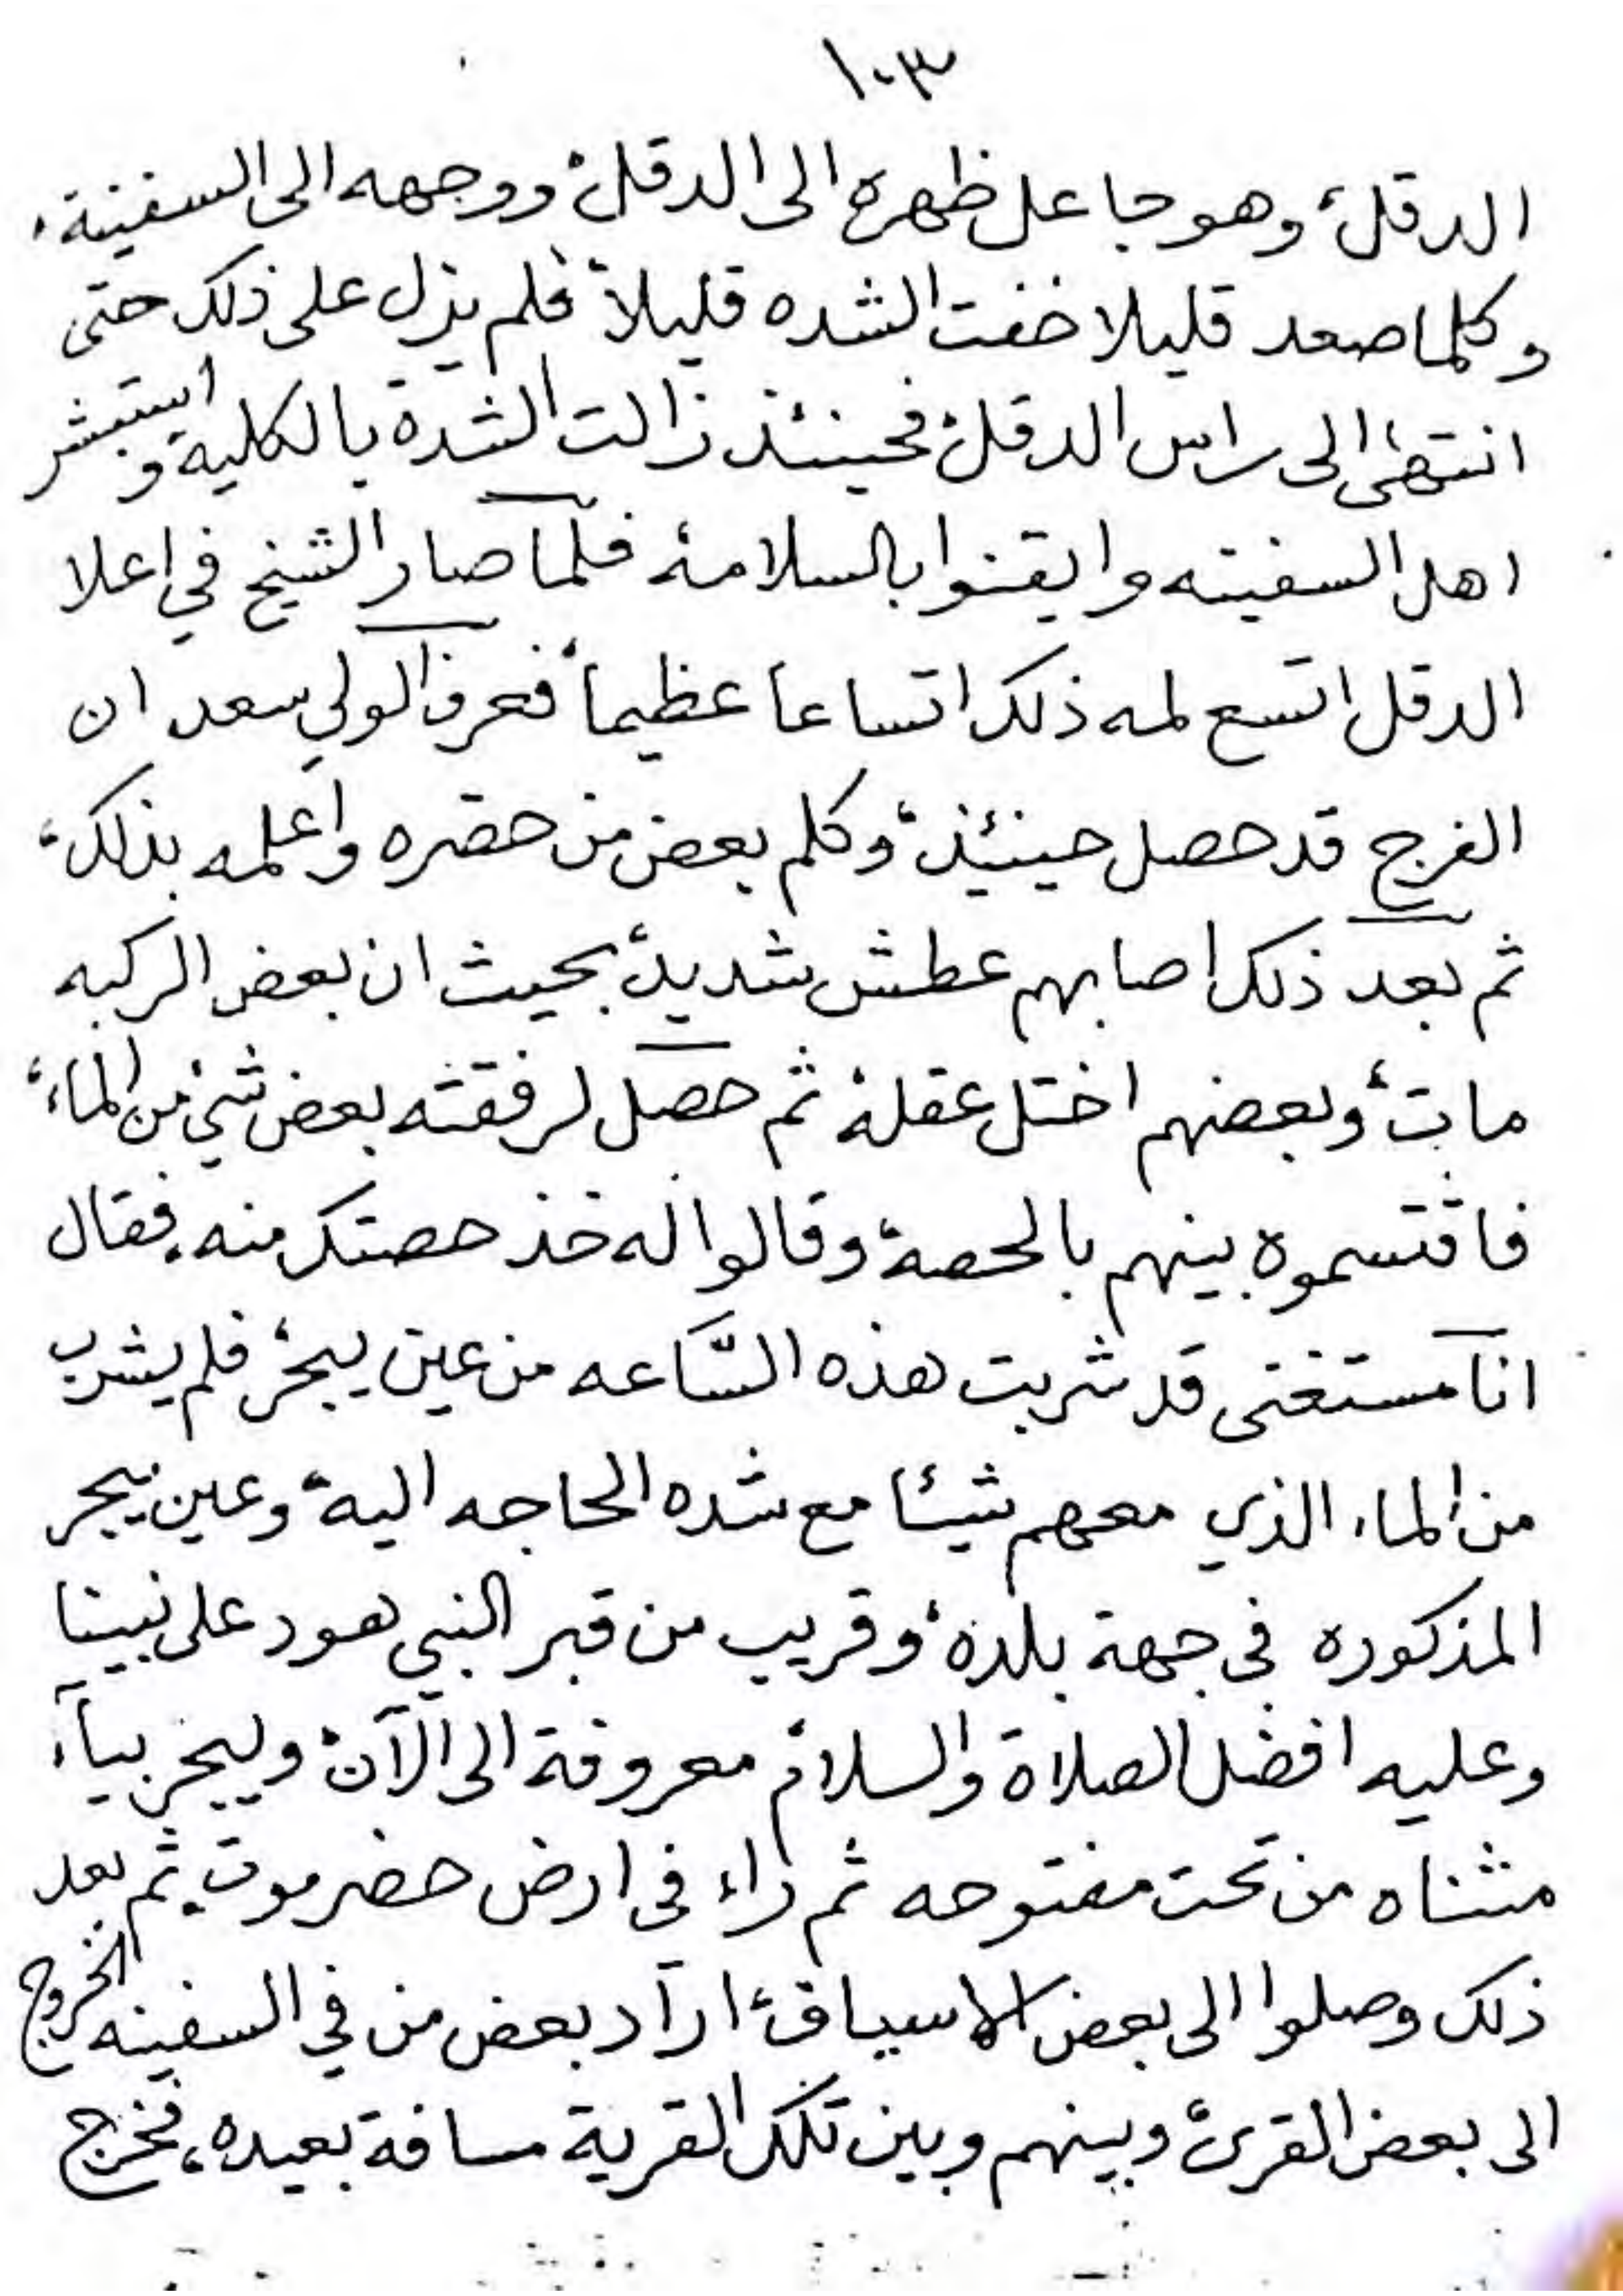 ١٠٣
الدقل، وهو جاعل ظهره الى الدقل، ووجهه الى السفينة،
وكلما صعد قليلا خفت الشده قليلاً فلم يزل على ذلك حتى
انتهى الى راس الدقل، فحينئذ زالت الشدة بالكلية، واستبشر
اهل السفينه وايقنوا بالسلامة، فلما صار الشيخ في اعلا
الدقل اتسع له ذلك اتساعا عظيماً، فعرف الولي سعد ان
الفرج قد حصل حينئيذ، وكلم بعض من حضره واعلمه بذلك،
ثم بعد ذلك اصابهم عطش شديد، بحيث ان بعض الركبه
مات، وبعضهم اختل عقله، ثم حصل لرفقته بعض شيء من الماء،
فاقتسموه بينهم بالحصة، وقالوا له خذ حصتك منه، فقال
انا مستغنى قد شربت هذه السَّاعه من عين يبحر، فلم يشرب
من الماء الذي معهم شيئا مع شده الحاجه اليه، وعين يبحر
المذكوره فى جهة بلده، وقريب من قبر النبي هود على نبينا
وعليه افضل الصلاة والسلام، معروفة الى الآن، ويبحر بياء
مثناه من تحت مفتوحه ثم راء فى ارض حضرموت، ثم بعد
ذلك وصلوا الى بعض الاسياف، اراد بعض من في السفينه الخروج
الى بعض القرى، وبينهم وبين تلك القرية مسافة بعيده، فخرج